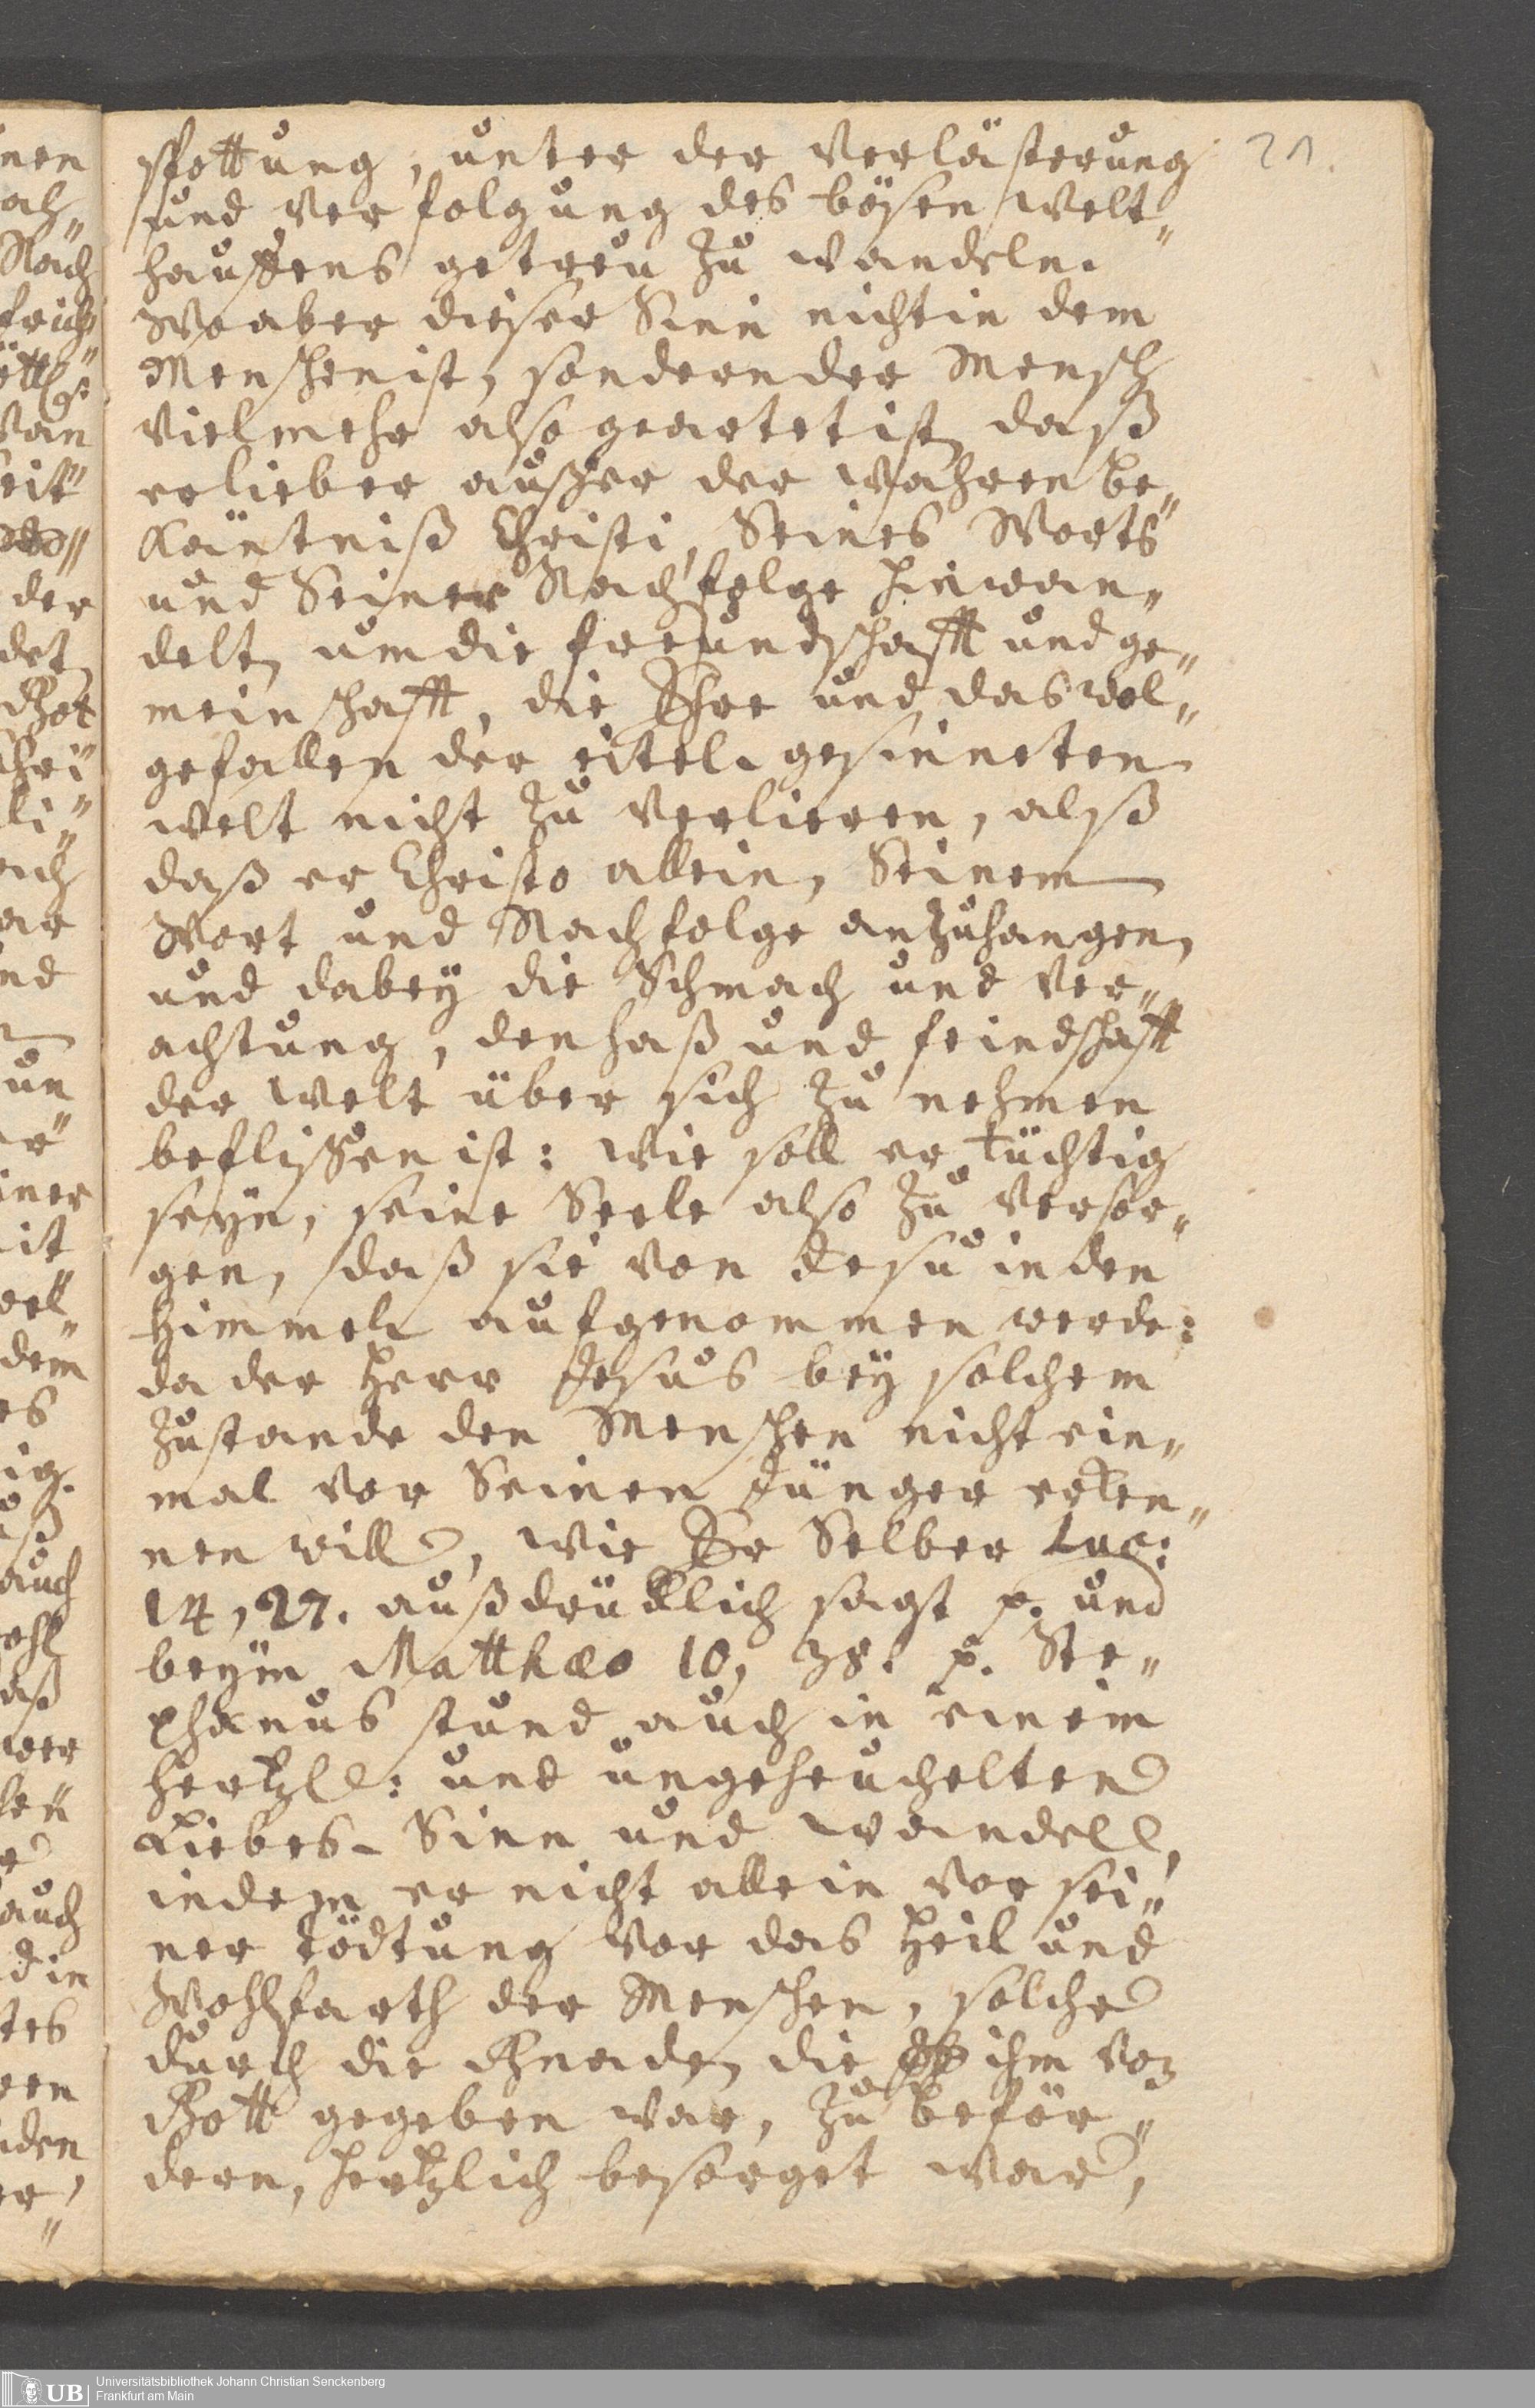 21.
spottung, unter der Verlästerung
und Verfolgung des bösen Welt„
hauffens getreu zu wandeln.
Wo aber dieser Sinn nicht in dem
Menschen ist, sondern der Mensch
vielmehr also geartet ist, daß
er lieber ausser der wahren Be„
käntniß Christi, Seines Worts
und Seiner Nachfolge hinwan„
delt, um die freundschafft und ge„
meinschafft, die Ehre und das wol„
gefallen der eitel gesinneten
Welt nicht zu verlieren, alß
daß er Christo allein, Seinem
Wort und Nachfolge anzuhangen,
und dabeÿ die Schmach und Ver„
achtung, den haß und feindschafft
der Welt über sich zu nehmen
beflissen ist: wie soll er tüchtig
seÿn, seine Seele also zu versor„
gen, daß sie von Jesu in den
Himmel aufgenommen werde:
da der Herr Jesus beÿ solchem
Zustande den Menschen nicht ein„
mal vor Seinen Jünger erken„
nen will, wie Er Selber Luc:
14, 27. außdrücklich sagt p. und
beÿm Matthæo 10, 38. p. Ste„
phanus stund auch in einem
hertzl: und ungeheuchelten
Liebes-Sinn und wandell,
indem er nicht allein vor sei„
ner tödtung vor das Heil und
Wohlfarth der Menschen, solche
durch die Gnade, die ihm von
Gott gegeben war, zu beför„
dern, hertzlich besorget war,
Universitätsbibliothek Johann Christian Senckenberg
Frankfurt am Main
UB